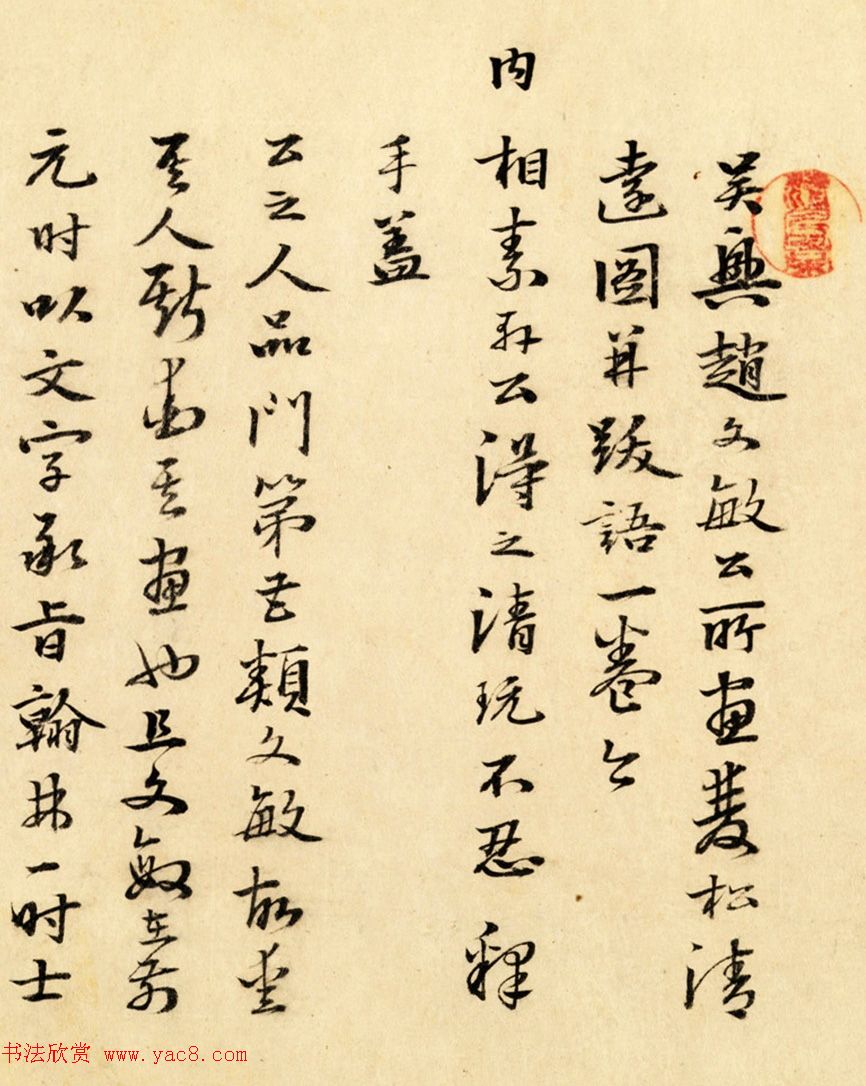 吴興趙文敏公所畫雙松清
遠圖并跋語一卷今
内相素公得之清玩不忍釋
手蓋
公之人品門第甚類文敏故愛
其人斯愛其畫也且文敏在前
元时以文字承旨翰林一时士
书法欣赏 www.yac8.com